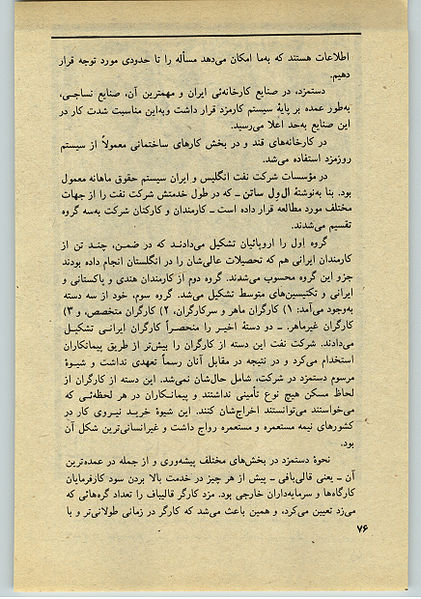 اطلاعات هستند که به‌ما امکان می‌دهد مسأله را تا حدودی مورد توجه قرار
دهیم.
دستمزد، در صنایع کارخانه‌ئی ایران و مهمترین آن، صنایع نساجی،
به‌طور عمده بر پایهٔ سیستم کارمزد قرار داشت وبه‌این مناسبت شدت کار در
این صنایع به‌حد اعلا می‌رسید.
در کارخانه‌های قند و در بخش کارهای ساختمانی معمولاً از سیستم
روزمزد استفاده می‌شد.
در مؤسسات شرکت نفت انگلیس و ایران سیستم حقوق ماهانه معمول
بود. بنا به‌نوشتهٔ ال‌ول ساتن ــ که در طول خدمتش شرکت نفت را از جهات
مختلف مورد مطالعه قرار داده است ــ کارمندان و کارکنان شرکت به‌سه گروه
تقسیم می‌شدند.
گروه اول را اروپائیان تشکیل می‌دادند که در ضمن، چند تن از
کارمندان ایرانی هم که تحصیلات عالی‌شان را در انگلستان انجام داده بودند
جزو این گروه محسوب می‌شدند. گروه دوم از کارمندان هندی و پاکستانی و
ایرانی و تکنیسین‌های متوسط تشکیل می‌شد. گروه سوم، خود از سه دسته
به‌وجود می‌آمد: ۱) کارگران ماهر و سرکارگران، ۲) کارگران متخصص، و ۳)
کارگران غیرماهر. ــ دو دستهٔ اخیر را منحصراً کارگران ایرانی تشکیل
می‌دادند. شرکت نفت این دسته از کارگران را بیش‌تر از طریق پیمانکاران
استخدام می‌کرد و در نتیجه در مقابل آنان رسماً تعهدی نداشت و شیوهٔ
مرسوم دستمزد در شرکت، شامل حال‌شان نمی‌شد. این دسته از کارگران از
لحاظ مسکن هیچ نوع تأمینی نداشتند و پیمانکاران در هر لحظه‌ئی که
می‌خواستند می‌توانستند اخراج‌شان کنند. این شیوهٔ خرید نیروی کار در
کشورهای نیمه مستعمره و مستعمره رواج داشت و غیرانسانی‌ترین شکل آن
بود.
نحوهٔ دستمزد در بخش‌های مختلف پیشه‌وری و از جمله در عمده‌ترین
آن ــ یعنی قالی‌بافی ــ بیش از هر چیز در خدمت بالا بردن سود کارفرمایان
کارگاه‌ها و سرمایه‌داران خارجی بود. مزد کارگر قالیباف را تعداد گره‌هائی که
می‌زد تعیین می‌کرد، و همین باعث می‌شد که کارگر در زمانی طولانی‌تر و با
۷۶